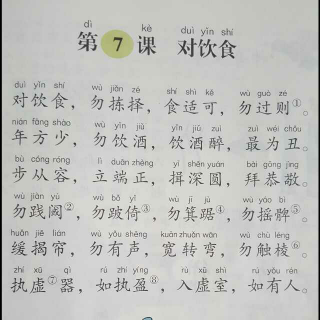 dì kè duì yǐn shí
第7课 对饮食
duì yǐn shí wù jiǎn zé shí shì kě wù guò zé
对饮食，勿拣择，食适可，勿过则①。
nián fāng shào wù yǐn jiǔ yǐn jiǔ zuì zuì wéi chǒu
年方少，勿饮酒，饮酒醉，最为丑。
bù cóng róng lì duān zhèng yī shēn yuán bài gōng jìng
步从容，立端正，揖深圆，拜恭敬。
wù jiàn yù wù bǒ yǐ wù jī jù wù yáo bì
勿践阈②，勿跛倚③，勿箕踞④，勿摇髀⑤。
huǎn jiē lián wù yǒu shēng kuān zhuǎn wān wù chù léng
缓揭帘，勿有声，宽转弯，勿触棱⑥。
zhí xū qì rú zhí yíng rù xū shì rú yǒu rén
执虚⑦器，如执盈⑧，入虚室，如有人。